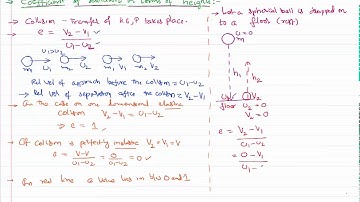 → Coefficient of in terms of heights:-
→ Collision - Transfer of K.E, P takes place.
→ e = V₂ - V₁ / U₁ - U₂
U₁>U₂
m₁ U₁ m₂ U₂ m₁ V₁ m₂ V₂
Rel vel of approach before the collision = U₁-U₂
→ Rel vel of separation after the collision = V₂-V₁
→ In the case on one dimensional elastic
collision V₂-V₁ = U₁-U₂
⇒ e = 1
→ If collision is perfectly inelastic V₂=V₁=V
e = V-V / U₁-U₂ = 0 / U₁-U₂ = 0
→ In real time e value lies in b/w 0 and 1
→ Let a spherical ball is dropped on
to a floor (rest)
U=0
m
h₁
h₂
U₁ V₁
floor U₂ = 0
V₂ = 0
e = V₂ - V₁ / U₁ - U₂
= 0 - V₁ / U₁ -